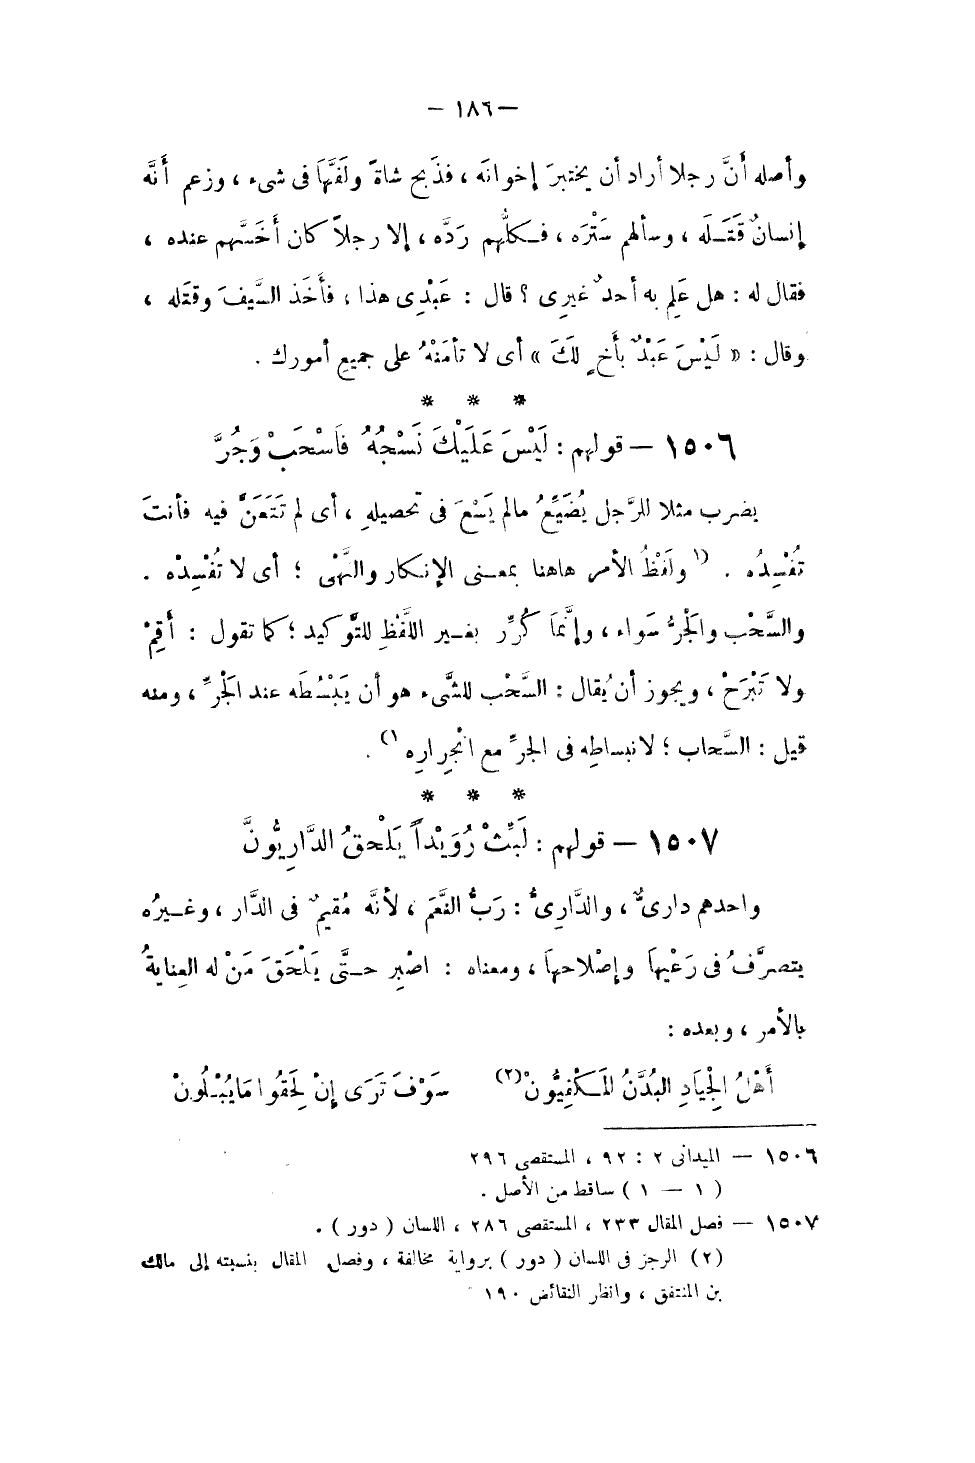 — ١٨٦ —
وأصله أَنَّ رجلا أراد أن يختبرَ إخوانَه ، فذَبح شاةً ولَفَّهَا فى شىء ، وزعم أَنَّه
إنسانٌ قَتَـلَه ، وسألهم سَتْرَه ، فـكلُّهم رَدَّه ، إلا رجلاً كان أَخَسَّهم عنده ،
فقال له : هل عَلِم به أحدٌ غيرِى ؟ قال : عَبْدِى هذا ؛ فأَخَذ السَّيفَ وقتَله ،
وقال : « لَيْسَ عَبْدٌ بأَخٍ لَكَ » أى لا تأمَنْهُ على جميع أمورك .
* * *
١٥٠٦ — قولهم : لَيْسَ عَلَيْكَ نَسْجُهُ فَاَسْحَبْ وَجُرَّ
يضرب مثلا للرَّجل يُضَيِّعُ مالم يَسْعَ فى تحصيلهِ ، أى لم تَتَعَنَّ فيه فأنتَ
تُفْسِدُه . (١ ولَفْظُ الأمر هاهنا بمعـنى الإنـكار والنَّهْى ؛ أى لا تُفْسِدْه .
والسَّحْب والجَرُّ سَواء ، وإنَّمَا كُرِّر بغـير اللَّفْظِ للتَّوكيد ؛ كما تقول : أَقِمْ
ولا تَبْرَحْ ، ويجوز أن يُقال : السَّحْب للشَّىء هو أن يَبْسُطَه عند الجَرِّ ، ومنه
قيل : السَّحاب ؛ لانبساطِه فى الجرِّ مع انْجِرارِه ١) .
* * *
١٥٠٧ — قولهم : لَبِّثْ رُوَيْداً يَلْحقُ الدَّارِيُّونَّ
واحدهم دارىٌّ ، والدَّارِىُّ : رَبُّ النَّعَم ، لأنَّه مُقيمٌ فى الدَّار ، وغـيرُه
يتصرَّفُ فى رَعْيِها وإصْلاحها ، ومعناه : اصْبِر حـتَّى يَلْحَقَ مَنْ له العِنايةُ
بالأمر ، وبعده :
أَهْلُ الْجِيَادِ البُدَّنُ المَـكْفِيُّونْ(٢) سَوْفَ تَرَى إِنْ لَحِقُوا مَايُبْـلُونْ
١٥٠٦ — الميدانى ٢ : ٩٢ ، المستقصى ٢٩٦
( ١ — ١ ) ساقط من الأصل .
١٥٠٧ — فصل المقال ٢٣٣ ، المستقصى ٢٨٦ ، اللسان ( دور ) .
(٢) الرجز فى اللسان ( دور ) برواية مخالفة ، وفصل المقال بنسبته إلى مالك
بن المنتفق ، وانظر النقائض ١٩٠